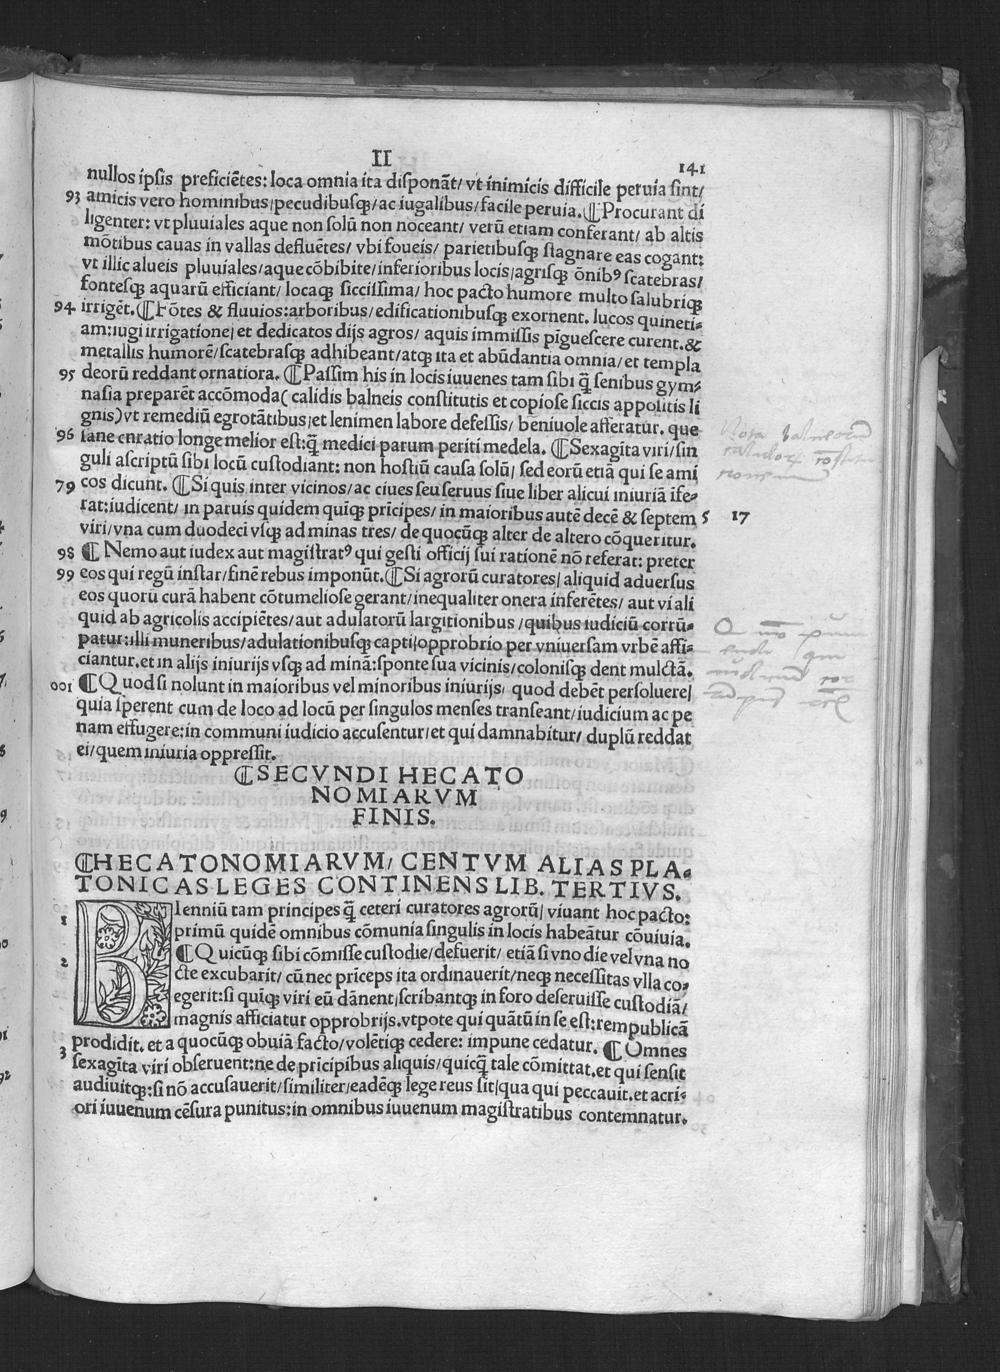 II
141
nullos ipsis preficiētes: loca omnia ita disponāt/ vt inimicis difficile peruia sint/
93 amicis vero hominibus/pecudibusqꝫ/ac iugalibus/facile peruia.⁋Procurant di
ligenter: vt pluuiales aque non solū non noceant/ verū etiam conferant/ ab altis
mōtibus cauas in vallas defluētes/ vbi foueis/ parietibusqꝫ stagnare eas cogant:
vt illic alueis pluuiales/aque cōbibite/inferioribus locis/agrisqꝫ ōnibꝰ scatebras/
fontesqꝫ aquarū efficiant/ locaqꝫ siccissima/ hoc pacto humore multo salubriqꝫ
94 irrigēt.⁋Fōtes & fluuios:arboribus/edificationibusqꝫ exornent. lucos quineti⸗
am:iugi irrigatione/et dedicatos dijs agros/ aquis immissis pīguescere curent.&
metallis humorē/scatebrasqꝫ adhibeant/atqꝫ ita et abūdantia omnia/et templa
95 deorū reddant ornatiora. ⁋Passim his in locis iuuenes tam sibi q̄ senibus gym⸗
nasia preparēt accōmoda( calidis balneis constitutis et copiose siccis appositis li
gnis)vt remediū egrotātibus/et lenimen labore defessis/ beniuole afferatur. que
96 sane curatio longe melior est:q̄ medici parum periti medela. ⁋Sexagīta viri/sin
guli ascriptū sibi locū custodiant: non hostiū causa solū/ sed eorū etiā qui se ami
79 cos dicunt. ⁋Si quis inter vicinos/ac ciues seu seruus siue liber alicui iniuriā īfe⸗
rat:iudicent/ in paruis quidem quiqꝫ prīcipes/ in maioribus autē decē & septem 5 17
viri/vna cum duodeci vsqꝫ ad minas tres/ de quocūqꝫ alter de altero cōqueritur.
98 ⁋ Nemo aut iudex aut magistratꝰ qui gesti officij sui rationē nō referat: preter
99 eos qui regū instar/finē rebus imponūt.⁋Si agrorū curatores/aliquid aduersus
eos quorū curā habent cōtumeliose gerant/inequaliter onera inferētes/ aut vi ali
quid ab agricolis accipiētes/aut adulatorū largitionibus /quibus iudiciū corrū⸗
patur:illi muneribus/adulationibusqꝫ capti/opprobrio per vniuersam vrbē affi⸗
ciantur.et in alijs iniurijs vsqꝫ ad minā:sponte sua vicinis/colonisqꝫ dent mulctā.
001 ⁋Quod si nolunt in maioribus vel minoribus iniurijs/ quod debēt persoluere/
quia sperent cum de loco ad locū per singulos menses transeant/iudicium ac pe
nam effugere:in communi iudicio accusentur/et qui damnabitur/ duplū reddat
ei/quem iniuria oppressit.
⁋SECVNDI HECATO
NOMIARVM
FINIS.
⁋HECATONOMIARVM/ CENTVM ALIAS PLA⸗
TONICAS LEGES CONTINENS LIB. TERTIVS.
1 BIenniū tam principes q̄ ceteri curatores agrorū/ viuant hoc pacto:
primū quidē omnibus cōmunia singulis in locis habeātur cōuiuia.
2 ⁋Quicūqꝫ sibi cōmisse custodie/defuerit/ etiā si vno die vel vna no
cte excubarit/ cū nec prīceps ita ordinauerit/neqꝫ necessitas vlla co⸗
egerit:si quīqꝫ viri eū dānent/scribantqꝫ in foro deseruisse custodiā/
magnis afficiatur opprobrijs.vtpote qui quātū in se est:rempublicā
prodidit. et a quocūqꝫ obuiā facto/volētiqꝫ cedere: impune cedatur. ⁋Omnes
3 sexagīta viri obseruent:ne de prīcipibus aliquis/quicq̄ tale cōmittat.et qui sensit
audiuitqꝫ:si nō accusauerit/similiter/eadēqꝫ lege reus sit/qua qui peccauit.et acri⸗
ori iuuenum cēsura punitus:in omnibus iuuenum magistratibus contemnatur.